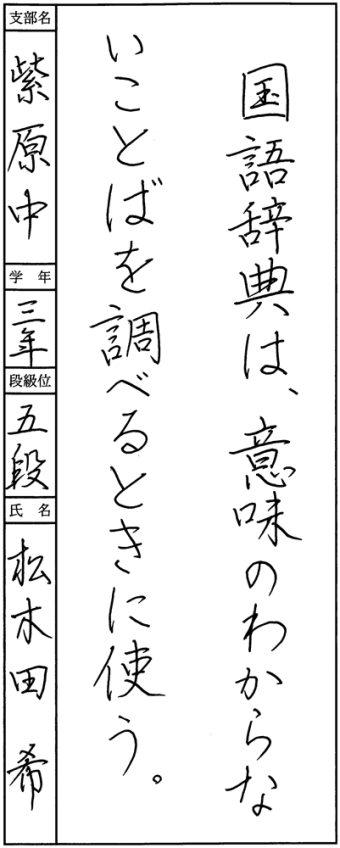 国語辞典は、意味のわからな
いことばを調べるときに使う。
支部名
紫原中
学年
三年
段級位
五段
氏名
松木田希